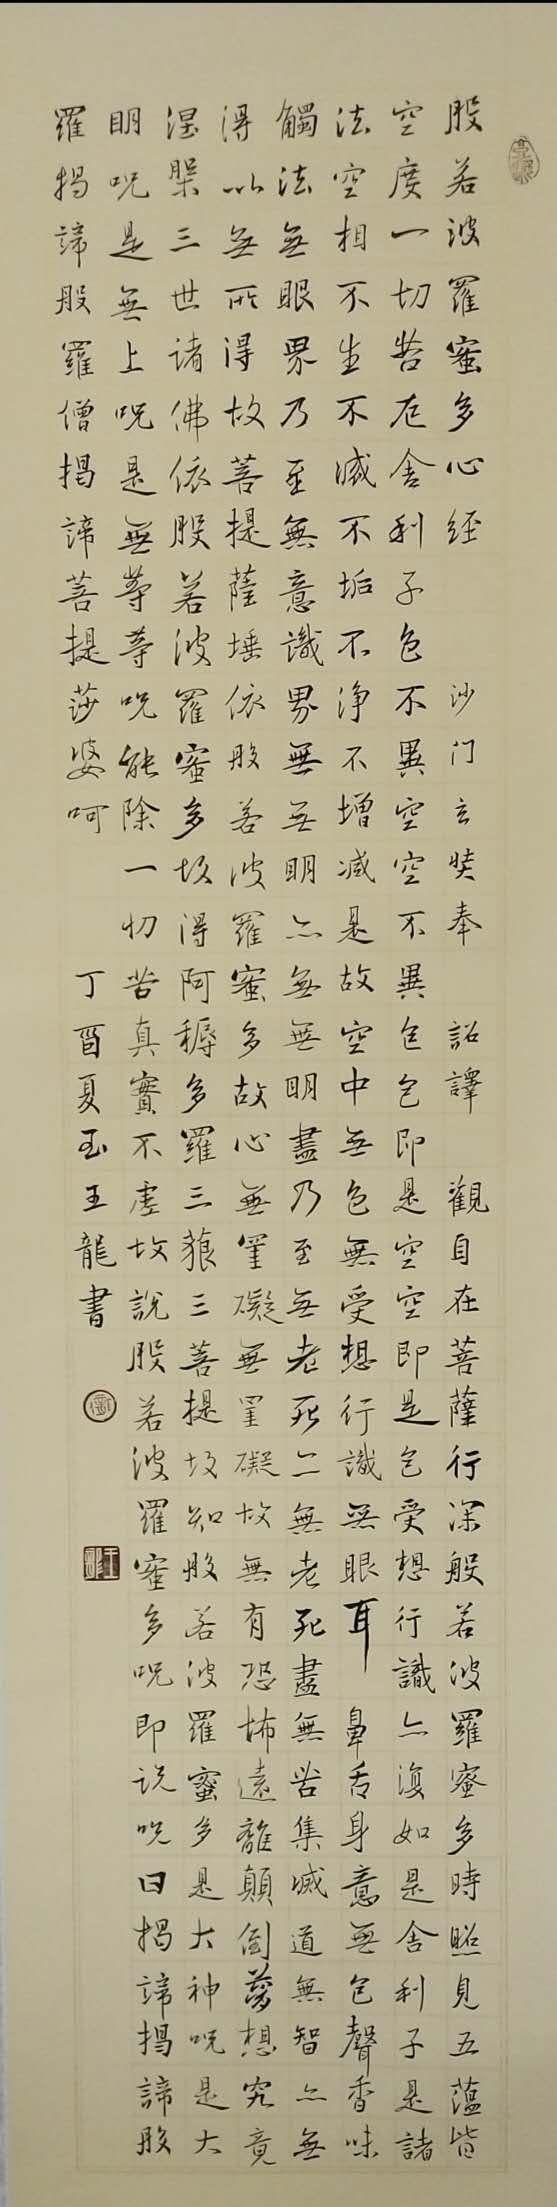 般若波羅蜜多心經 沙门玄奘奉 詔譯 觀自在菩薩行深般若波羅蜜多時照見五蘊皆
空度一切苦厄舍利子色不異空空不異色色即是空空即是色受想行識亦復如是舍利子是諸
法空相不生不滅不垢不净不增减是故空中無色無受想行識無眼耳 鼻舌身意無色聲香味
觸法無眼界乃至無意識界無無明亦無無明盡乃至無老死亦無老死盡無苦集滅道無智亦無
得以無所得故菩提薩埵依般若波羅蜜多故心無罣礙無罣礙故無有恐怖遠離顛倒夢想究竟
涅槃三世諸佛依般若波羅蜜多故得阿耨多羅三藐三菩提故知般若波羅蜜多是大神呪是大
明呪是無上呪是無等等呪能除一切苦真實不虛故說般若波羅蜜多呪即说呪曰揭諦揭諦般
羅揭諦般羅僧揭諦菩提莎婆呵 丁酉夏至王龍書